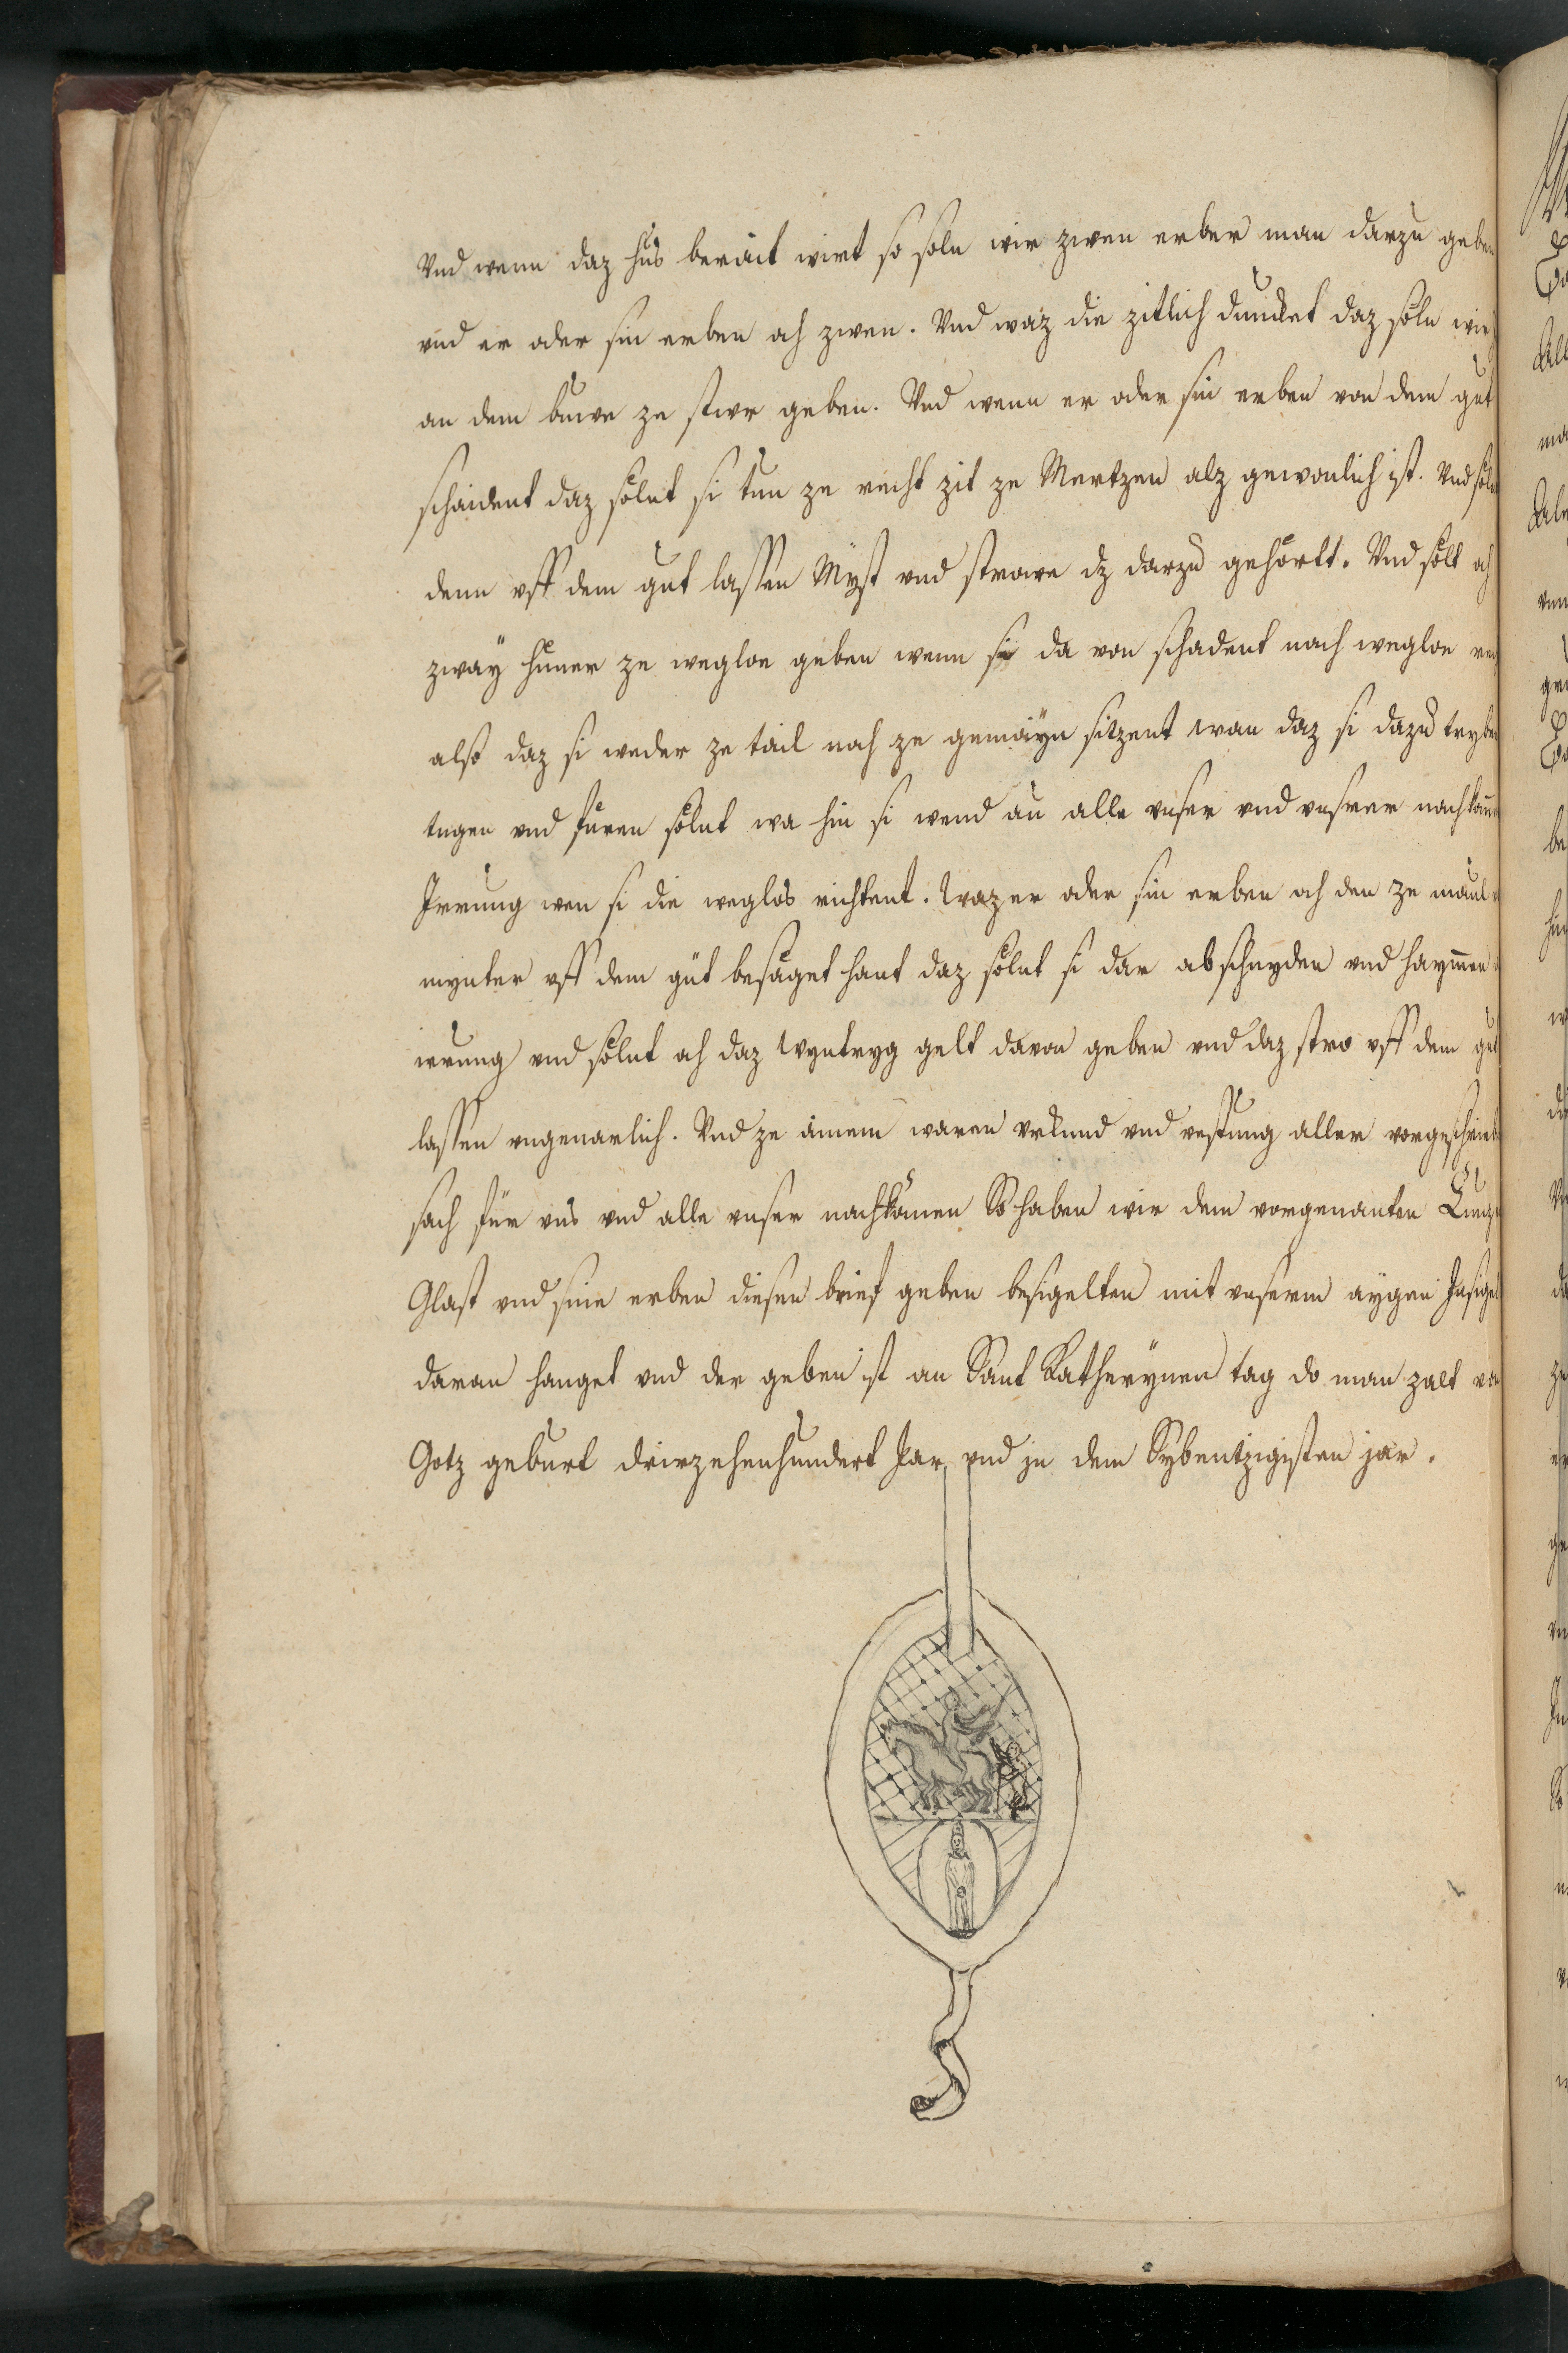 Vnd wenn daz hus berait wirt so soln wir zwen erber man darzu geben
vnd er oder sin erben och zwen. Vnd waz die zitlich dunket daz söln wir
an dem buwe ze stwr geben. Vnd wenn er oder sin erben von dem gut
schaident daz sölnt si tun ze recht zit ze Mertzen alz gewonlich ist. Vnd söln
denn vff dem gut lassen Myst vnd strowe dz darzu gehörtt. Vnd sölt och
zway hüner ze weglon geben wenn si da von schadent nach weglon
also daz si weder ze tail noch ze gemayn sitzent wan daz si dazu tryben
tragen vnd füren sölnt wa hin si wend an alle vnser vnd vnsrer nachkomen
Irrung wen si die weglos richtent. Waz er oder sin erben och den ze
wynter vff dem güt besäget hant daz sölnt si dar abschnyden vnd haymen
irrung vnd sölnt och daz Wyntryg gelt davon geben vnd daz stro vff dem gut
lassen vngevarlich. Vnd ze ainem waren vrkund vnd vestung aller vorgeschriben
sach für vns vnd alle vnser nachkömen So haben wir dem vorgenanten Cuntz
Glast vnd sine erben diesen brief geben besigelten mit vnserm aygen Insigel
daran hanget vnd der geben ist an Sant Katherynen tag do man zalt von
Gotz geburt driezehenhundert Jar vnd jn dem Sybentzigisten jar.